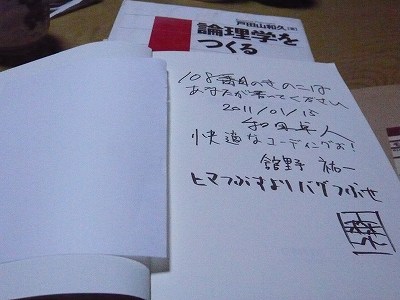 戸田山和久[著]
論理学を
つくる
108番目のきのこは
あなたが書いてください
2011/01/15
和田卓人
快適なコーディングを!
舘野 祐一
ヒマつぶすよりバグつぶせ